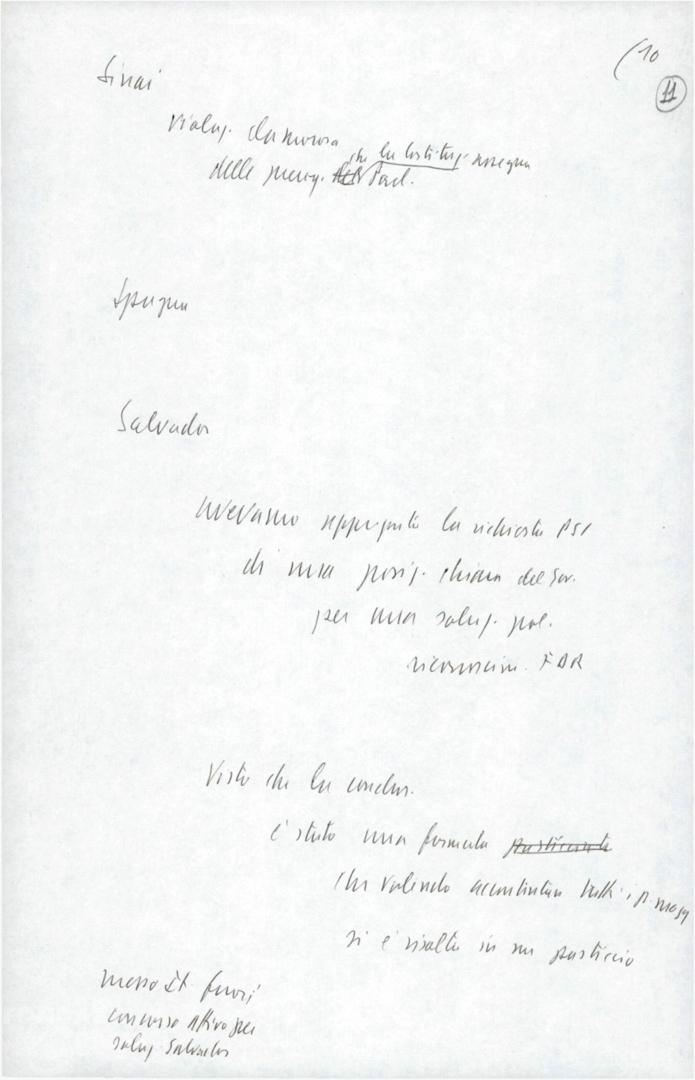 (10
11
Sinai
violaz. clamorosa
che la Costituz. assegna
delle prerog. del Parl.
Spagna
Salvador
avevamo appoggiato la richiesta PSI
di una posiz. chiara del Gov.
per una soluz. pol.
riconoscim. FDR
Visto che la conclus.
è stata una formula pasticciata
che volendo accontentare tutti i p. magg
si è risolta in un pasticcio
messo It. fuori
concorso attivo per
soluz. Salvador